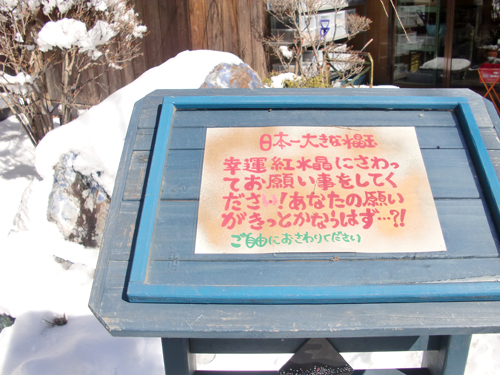 日本一大きな水晶玉
幸運紅水晶にさわっ
てお願い事をしてく
ださい!あなたの願い
がきっとかならはず…?!
ご自由におさわりください